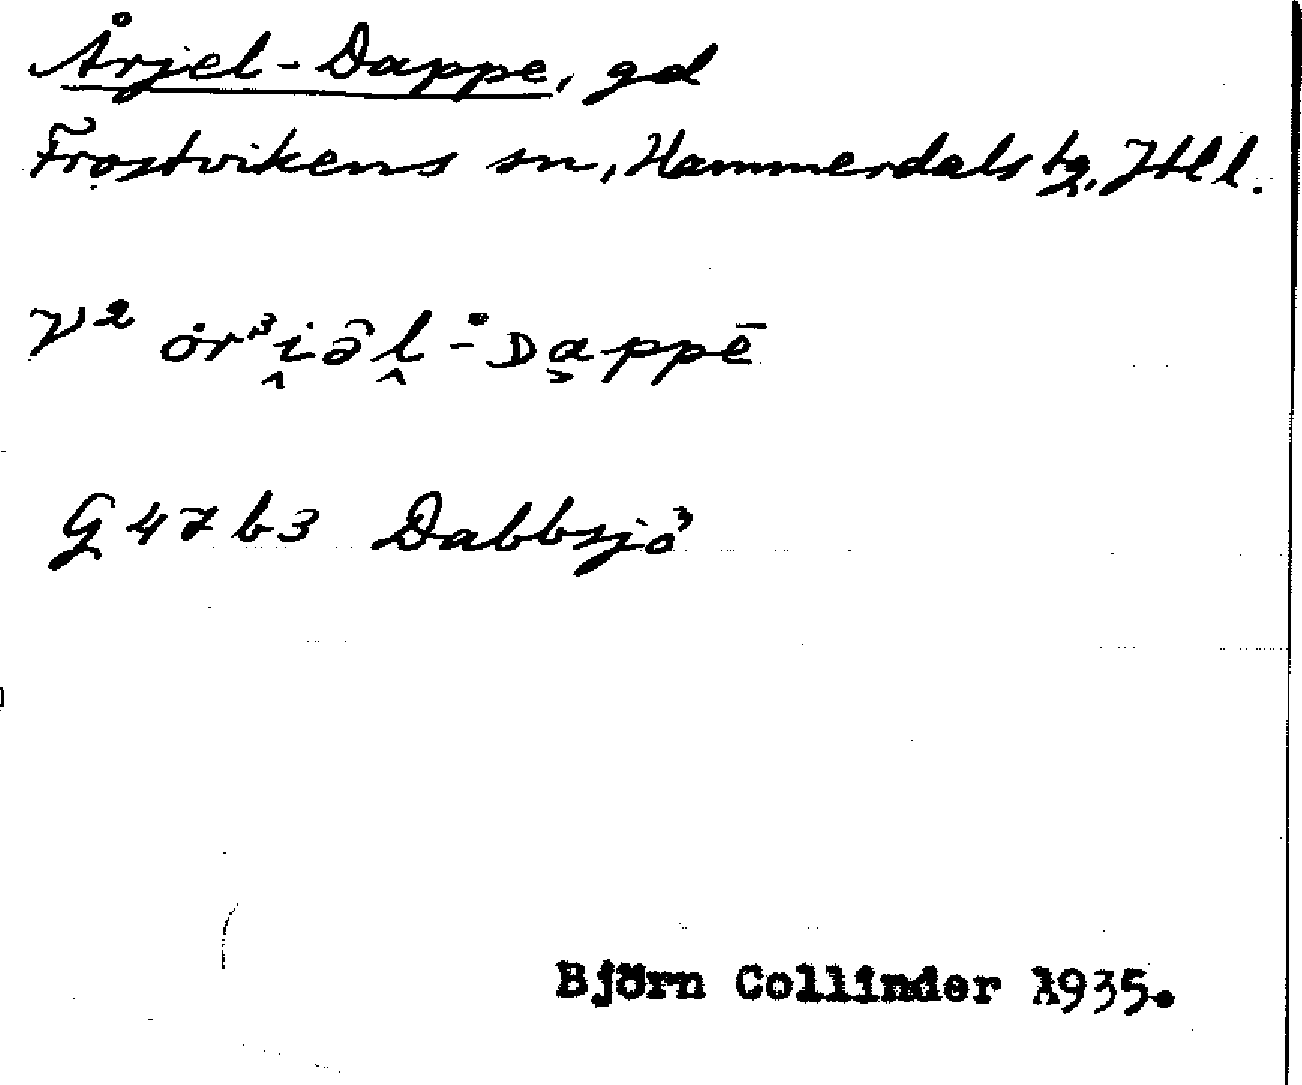 Årjel-Dappe, gd
Frostvikens sn, Hammerdals tg, Jtl l.
V² år³i̭ə̑ḽ-Dappē
G 47 b3 Dabbsjö
Björn Collinder 1935.